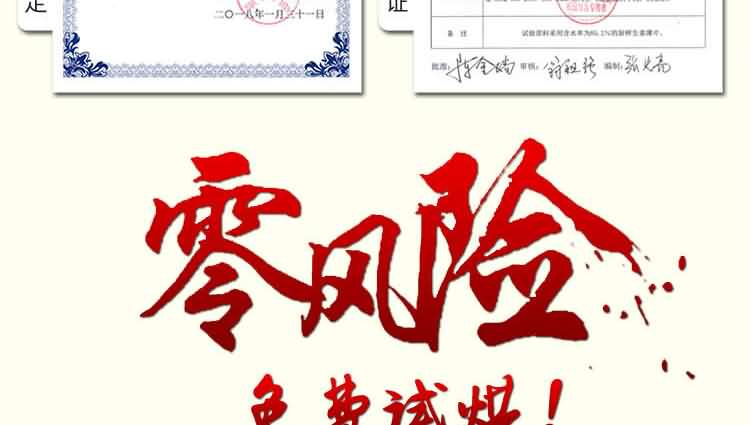 定
二〇一八年一月三十一日
证
备 注
试验部料采用含水率为86.2%的新鲜生姜薄片。
批准:
审核:
编制:
零风险
免费试烘!